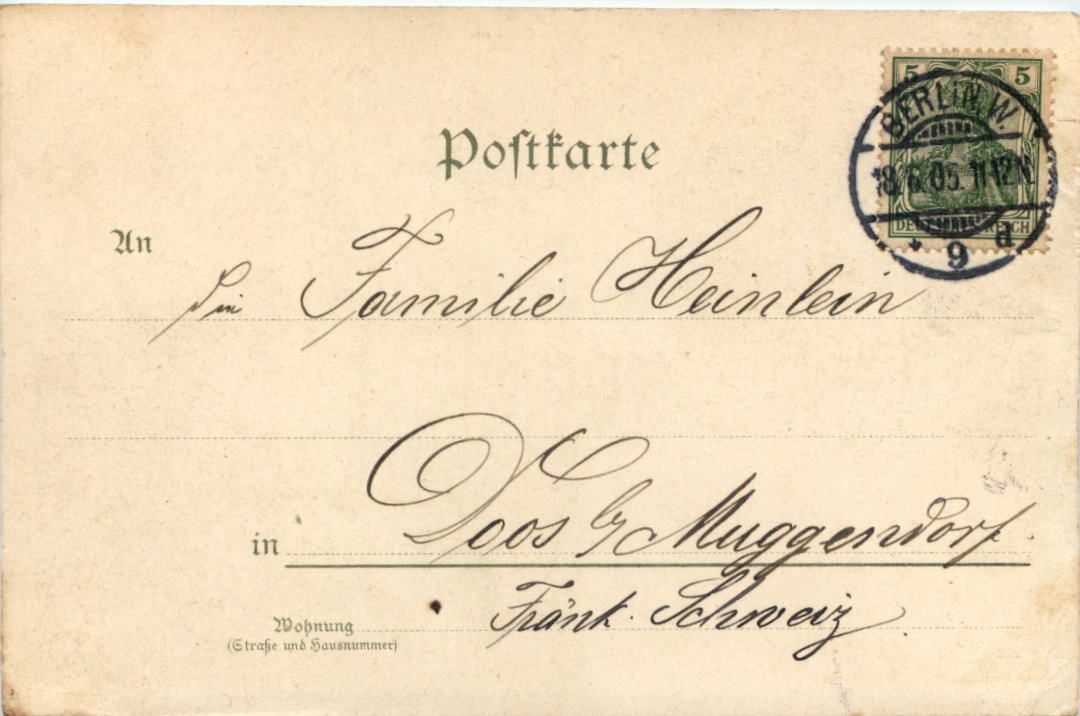 5 5
BERLIN. W.
18.6.05. 11-12N.
DEUTSCHES REICH
* 9 d
Postkarte
An
die Familie Heinlein
in Doos b/ Muggendorf.
Fränk. Schweiz
Wohnung
(Straße und Hausnummer)